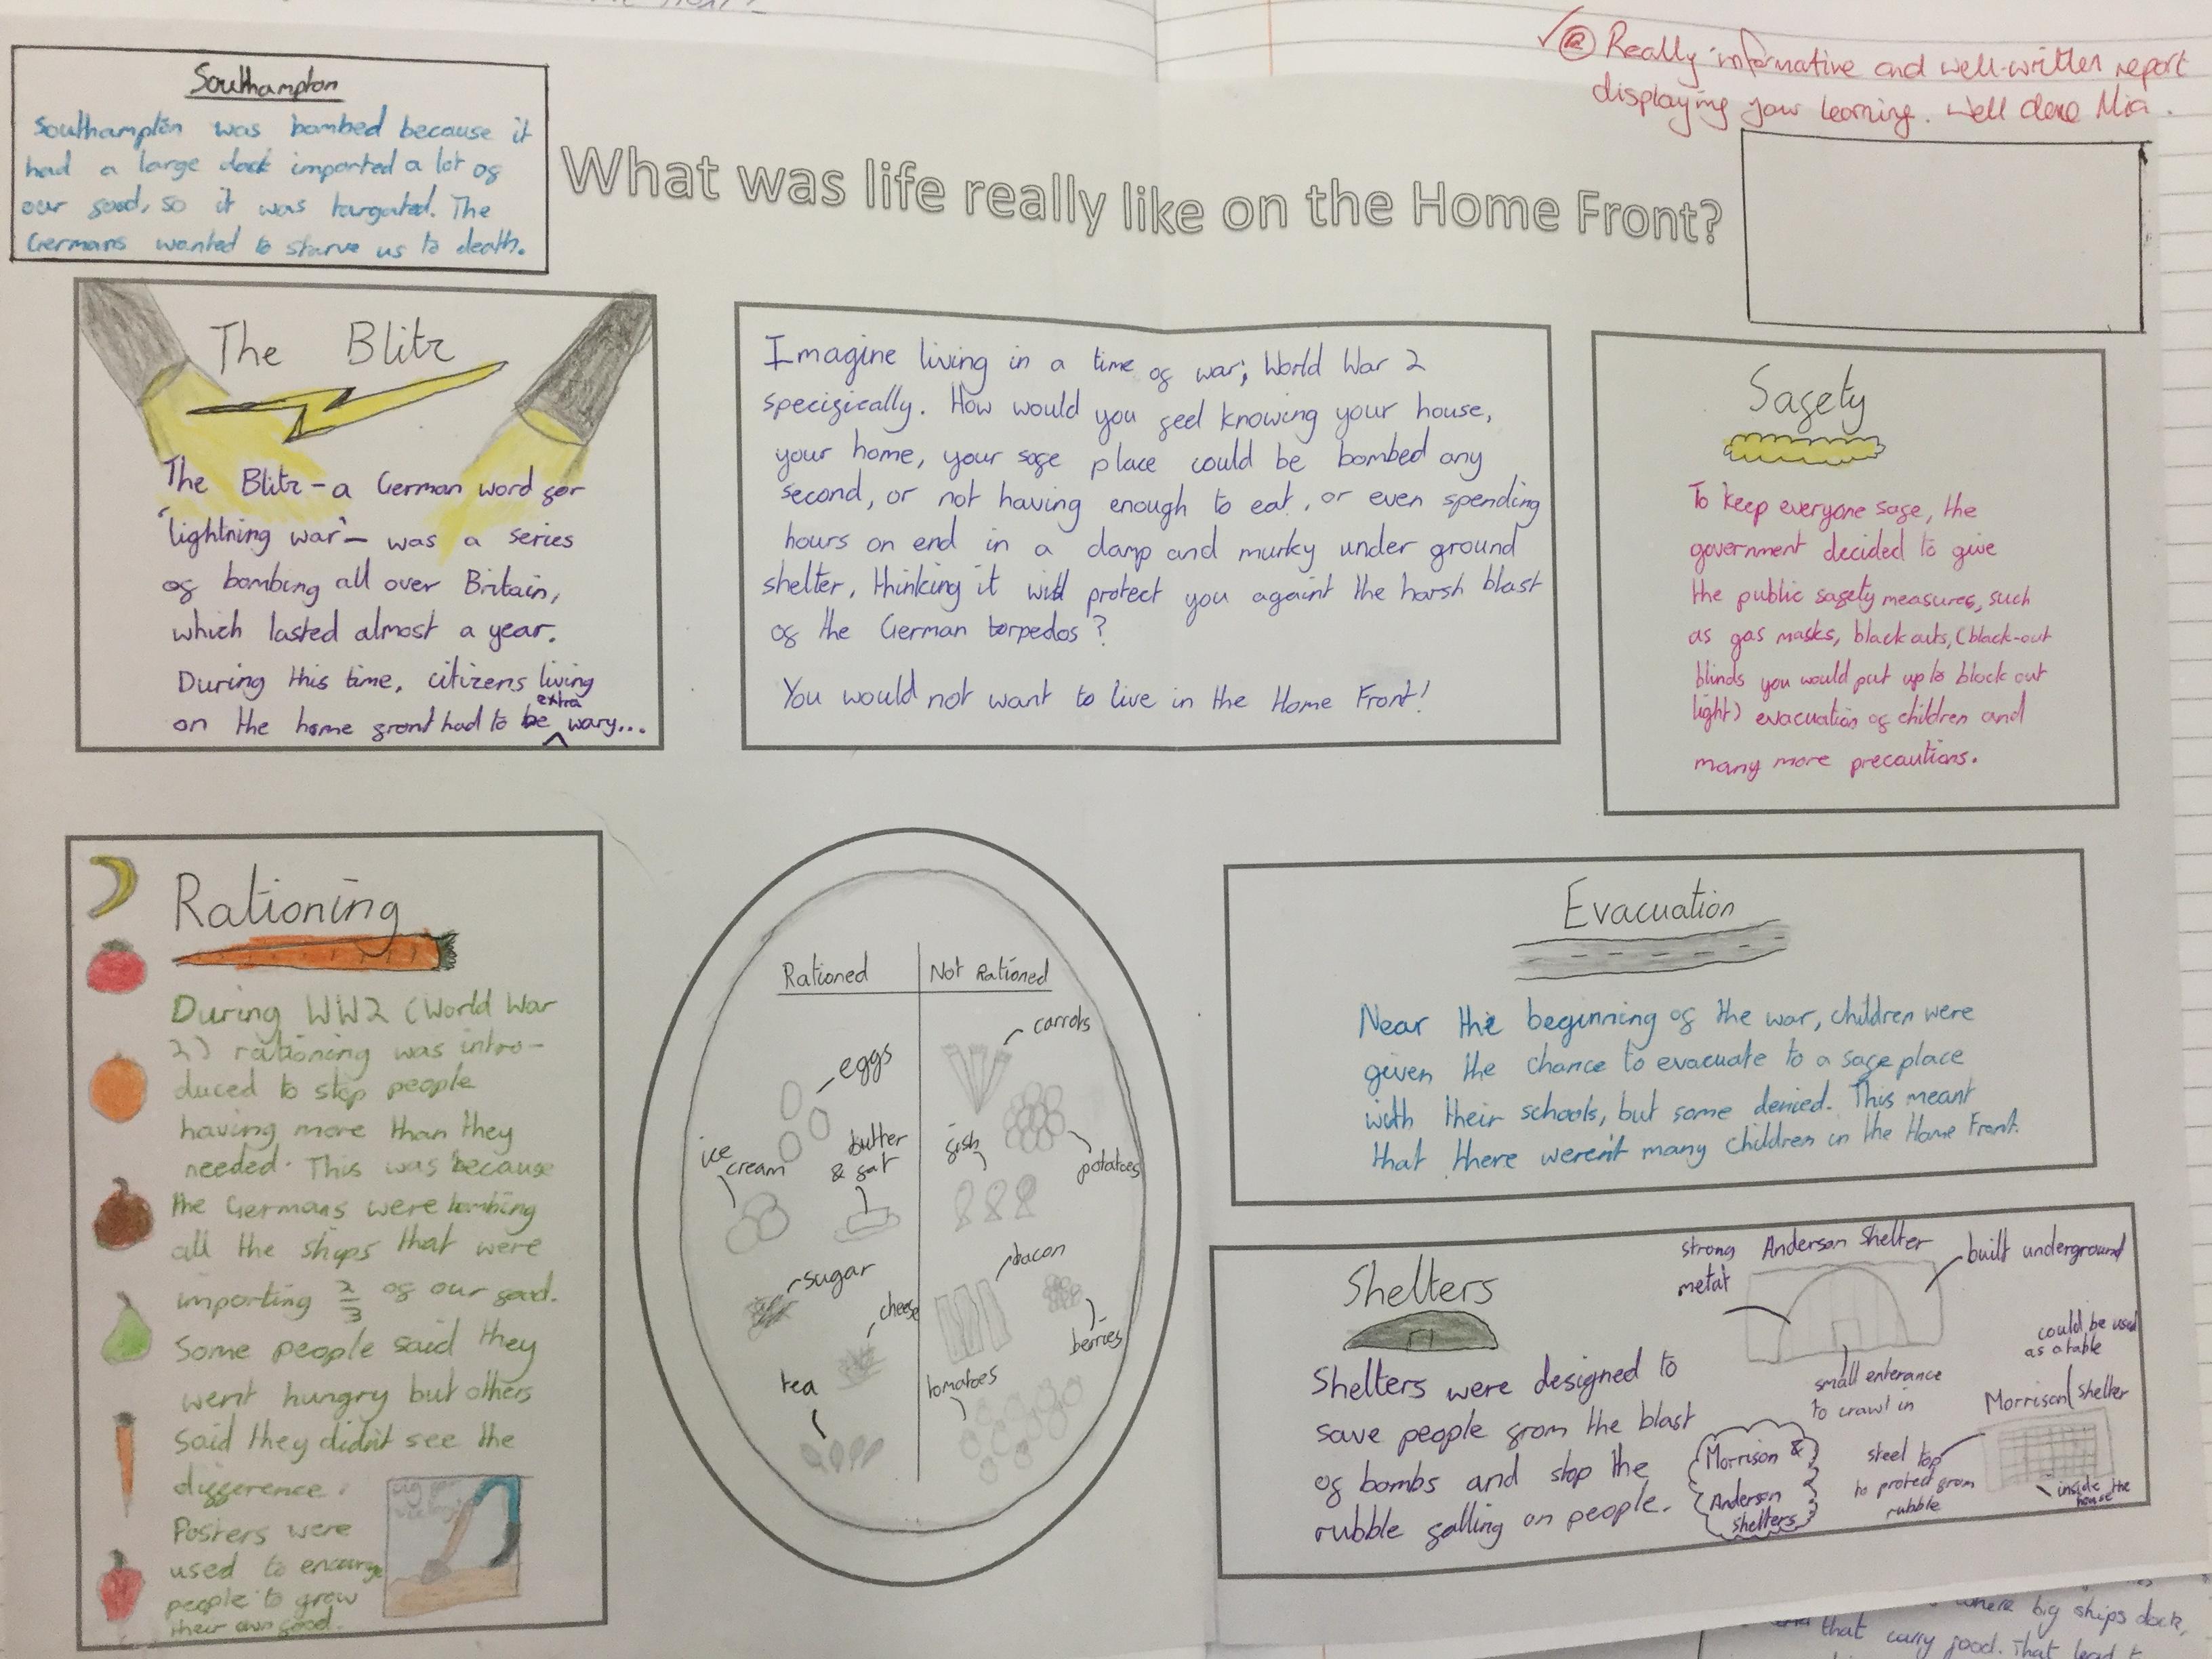 ✓ Ⓡ Really informative and well-written report
displaying your learning. Well done Mia.
Southampton
Southampton was bombed because it
had a large dock imported a lot of
our food, so it was targated. The
Germans wanted to starve us to death.
What was life really like on the Home Front?
The Blitz
The Blitz - a German word for
'lightning war' - was a series
of bombing all over Britain,
which lasted almost a year.
During this time, citizens living
on the home front had to be extra wary...
Imagine living in a time of war; World War 2
specifically. How would you feel knowing your house,
your home, your safe place could be bombed any
second, or not having enough to eat, or even spending
hours on end in a damp and murky under ground
shelter, thinking it will protect you againt the harsh blast
of the German torpedos?
You would not want to live in the Home Front!
Safety
To keep everyone safe, the
government decided to give
the public safety measures, such
as gas masks, black outs, (black-out
blinds you would put up to block out
light) evacuation of children and
many more precautions.
Rationing
During WW2 (World War
2) rationing was intro-
duced to stop people
having more than they
needed. This was because
the Germans were bombing
all the ships that were
importing 2/3 of our food.
Some people said they
went hungry but others
said they didn't see the
difference.
Posters were
used to encourage
people to grow
their own food.
Rationed
Not Rationed
eggs
ice cream
butter
& fat
sugar
cheese
tea
carrots
potatoes
fish
bacon
berries
tomatoes
Evacuation
Near the beginning of the war, children were
given the chance to evacuate to a safe place
with their schools, but some denied. This meant
that there weren't many children in the Home Front.
Shelters
Shelters were designed to
save people from the blast
of bombs and stop the
rubble falling on people.
Morrison &
Anderson
shelters
strong
metal
Anderson Shelter
built underground
small enterance
to crawl in
could be used
as a table
Morrison Shelter
steel top
to protect from
rubble
inside the
house
where big ships dock,
that carry food. That lead t